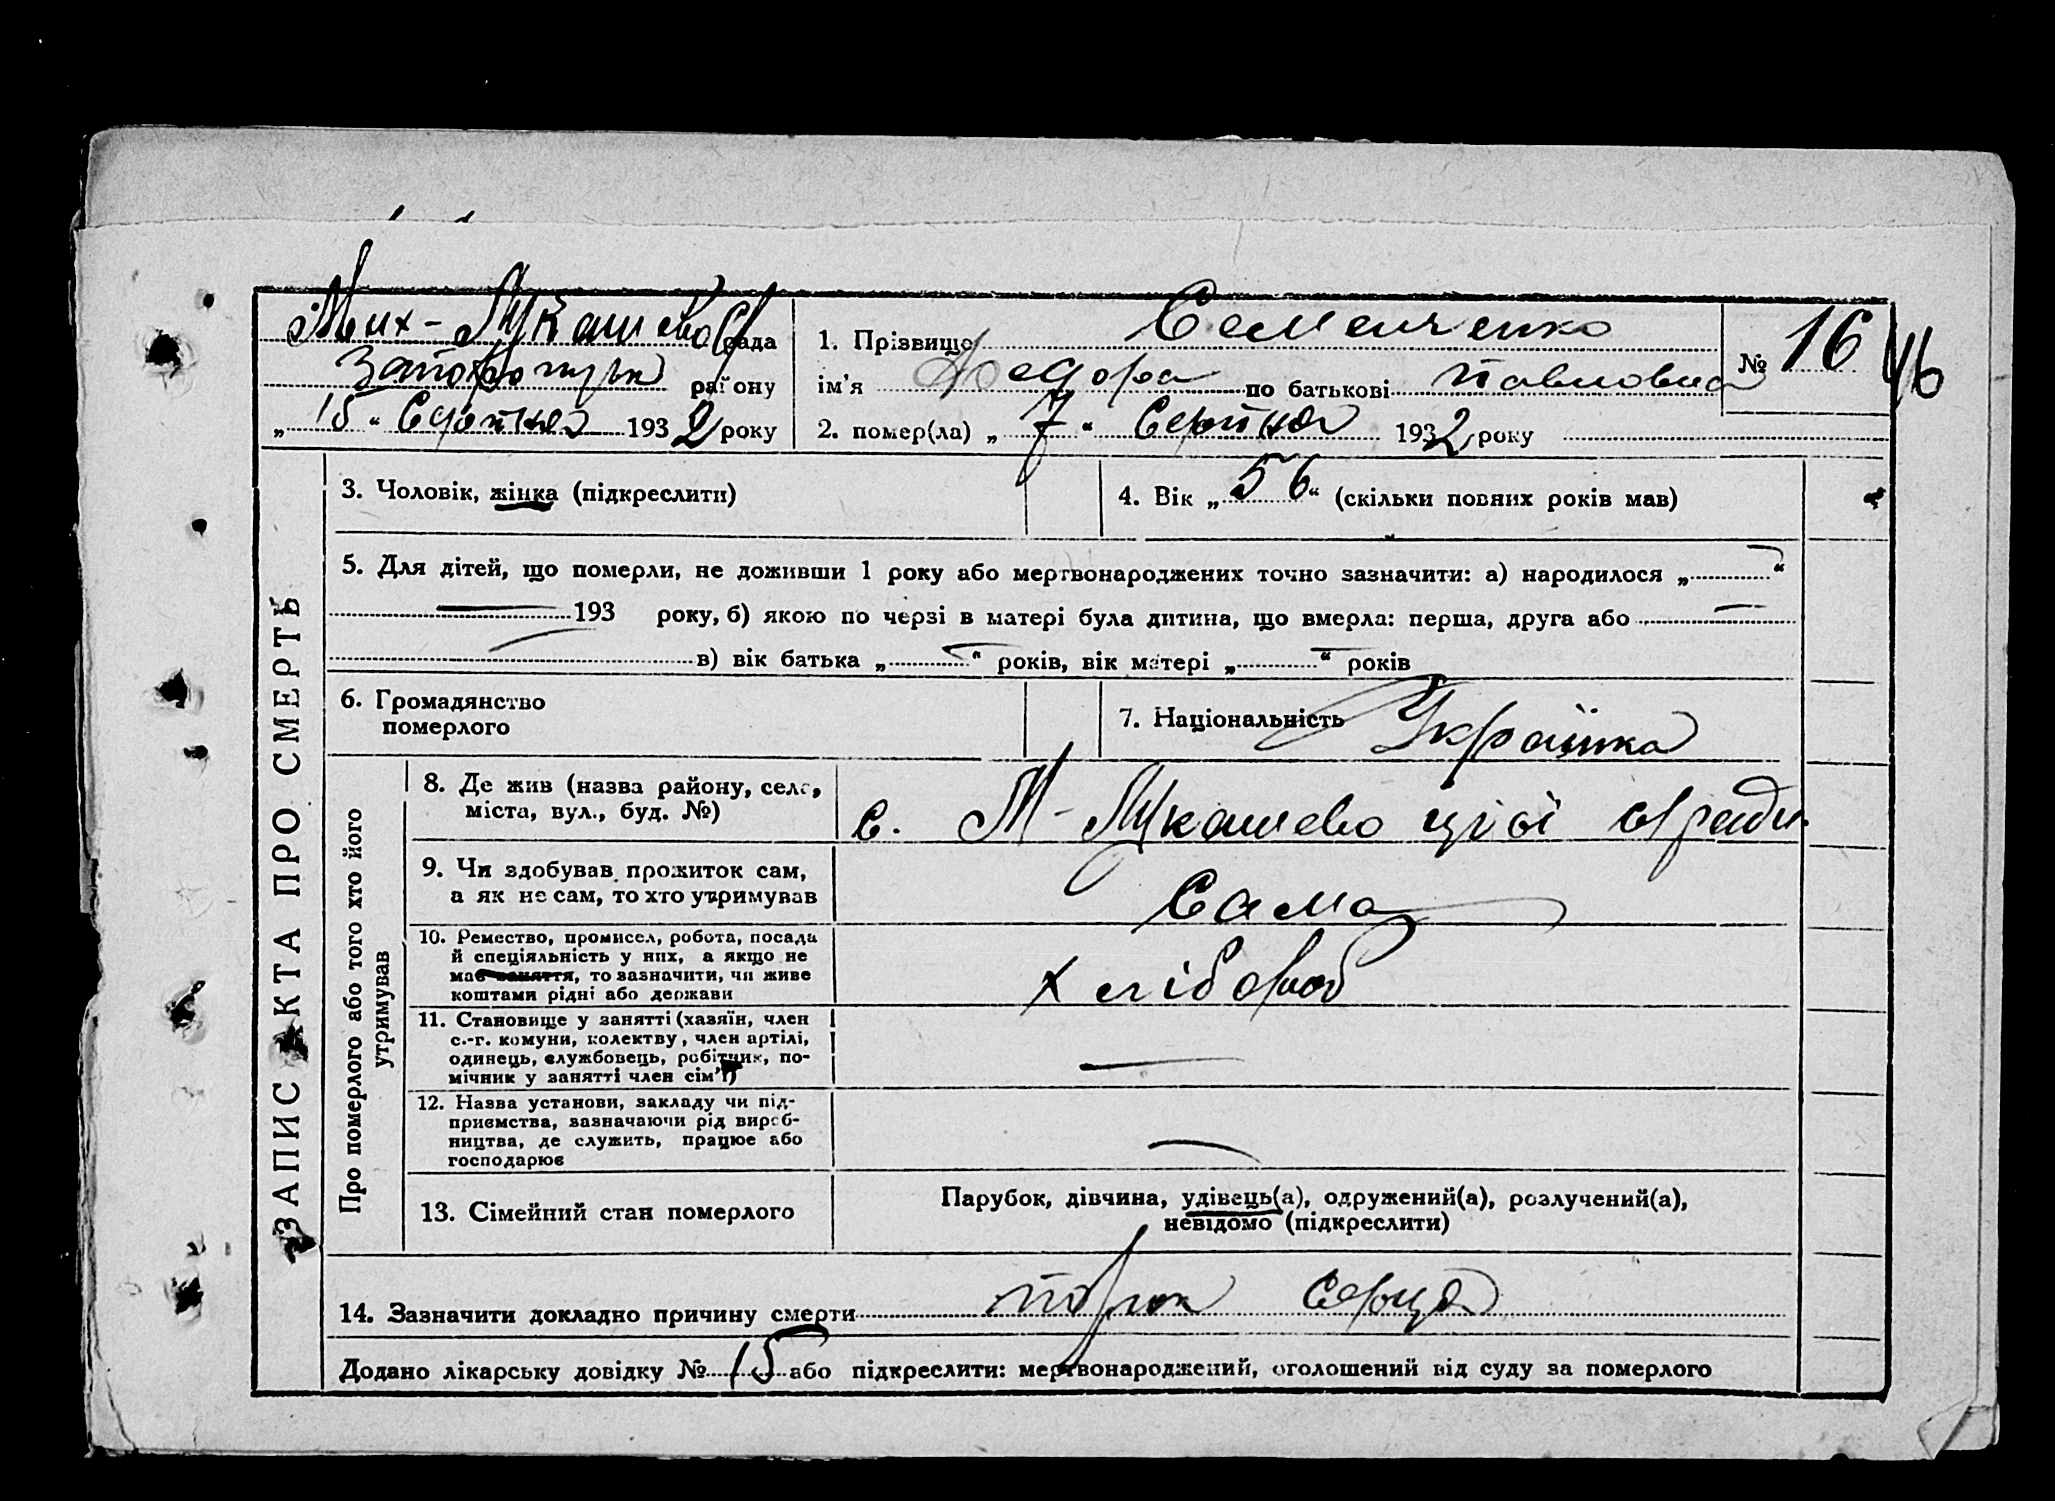 Мих-Лукашево С/рада
1. Прізвище Семенченко
№ 16
16
району
ім’я Федора по батькові Павловна
„15“ Серпня 1932 року
2. помер(ла) „7“ Серпня 1932 року
ЗАПИС АКТА ПРО СМЕРТЬ
3. Чоловік, жінка (підкреслити)
4. Вік „56“ (скільки повних років мав)
5. Для дітей, що померли, не доживши 1 року або мертвонароджених точно зазначити: а) народилося „ — “
— 193 року, б) якою по черзі в матері була дитина, що вмерла: перша, друга або —
— в) вік батька „ — “ років, вік матері „ — “ років
6. Громадянство
померлого
7. Національність Українка
Про померлого або того хто його
утримував
8. Де жив (назва району, села,
міста, вул., буд. №)
с. М-Лукашево цієї с/ради
9. Чи здобував прожиток сам,
а як не сам, то хто утримував
Сама
10. Ремество, промисел, робота, посада
й спеціяльність у них, а якщо не
має заняття, то зазначити, чи живе
коштами рідні або держави
Хлібороб
11. Становище у занятті (хазяїн, член
с.-г. комуни, колектву, член артілі,
одинець, службовець, робітник, по-
мічник у занятті член сім’ї)
—
12. Назва установи, закладу чи під-
приємства, зазначаючи рід вироб-
ництва, де служить, працює або
господарює
—
13. Сімейний стан померлого
Парубок, дівчина, удівець(а), одружений(а), розлучений(а),
невідомо (підкреслити)
14. Зазначити докладно причину смерти порок серця
Додано лікарську довідку № 15 або підкреслити: мертвонароджений, оголошений від суду за померлого